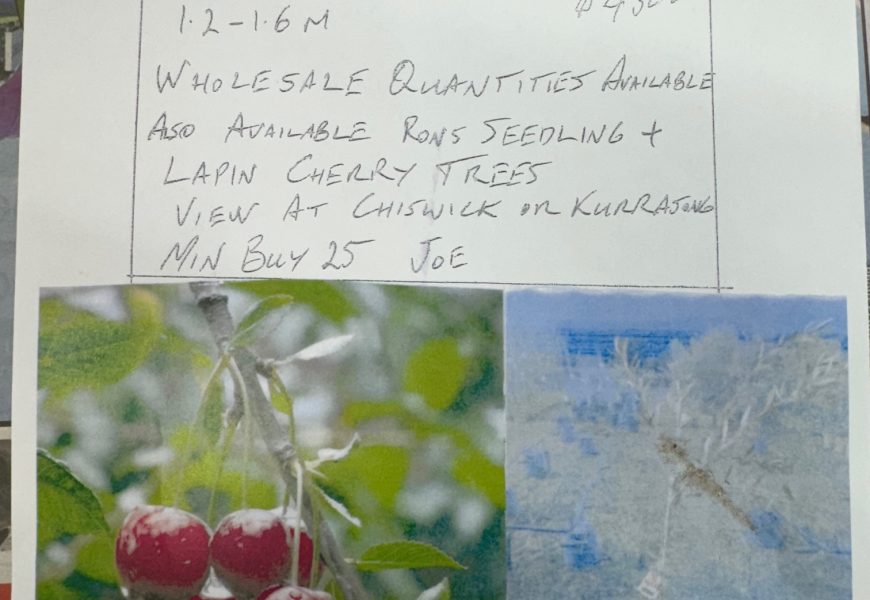 1.2-1.6 M
WHOLESALE QUANTITIES AVAILABLE
ALSO AVAILABLE RONS SEEDLING +
LAPIN CHERRY TREES
VIEW AT CHISWICK OR KURRAJONG
MIN BUY 25 JOE